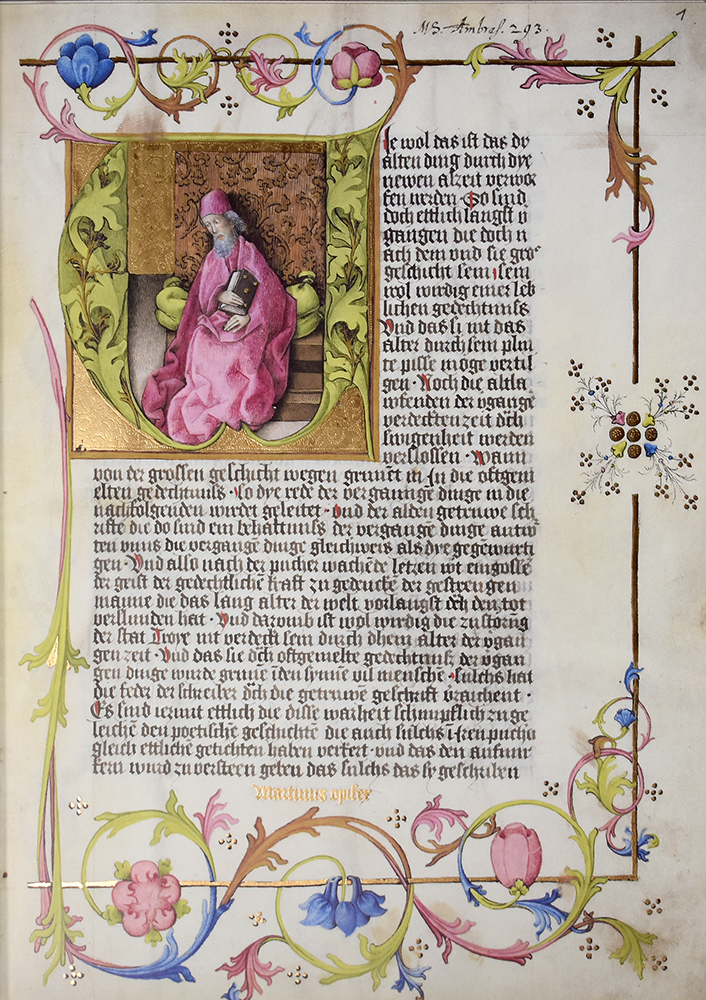 MS. Ambras. 293.
1
ie wol das ist das dy
alten ding durch dye
newen alzeit verwor
fen werden · So sind
doch ettlich langst v̄
gangen die doch n
ach dem vnd sie gros
geschicht sein · sein
wol wirdig einer leb
lichen gedechtnuss
Vnd das si mit das
alter durch sein plin
te pisse moge vertil
gen · Noch die altla
verdeckten zeit dch
swigenheit werden
verslossen · Wann
von der grossen geschicht wegen grunet in In die oftgem
elten gedechtnuss · so dye rede der vergannge dinge in die
nachfolgenden wirdet geleitet · vnd der alden getrewe sch
rifte die do sind ein behaltnuss der vergange dinge antw
ten vnns die vergange dinge gleichweis als dye gegewurti
gen · Vnd also nach der pucher wachede letzen wt eingosse
der geist der gedechtliche kraft zu gedencke der gestrengen
manne die das lang alter der welt vorlangst dch den tot
verslunden hat · Vnd darvmb ist wol wirdig die zustorūg
der stat Troye nit verdeckt sein durch dhein alter der vgan
gen zeit · Vnd das sie dch oftgemelte gedechtnuss der vgan
gen dinge wurde grune i den synnen vil mensche · sulchs hat
die feder der schreiber dch die getrewe geschrift vrachent ·
Es sind iermit ettlich die disse warheit schimpflich zu ge
leichē den poetischē geschichte die auch sulchs ī iren pucho
gleich ettliche getichten haben verkert · vnd das den aufmir
kern wurd zuversteen geben das sulchs das sy geschriben
Martinus opifex